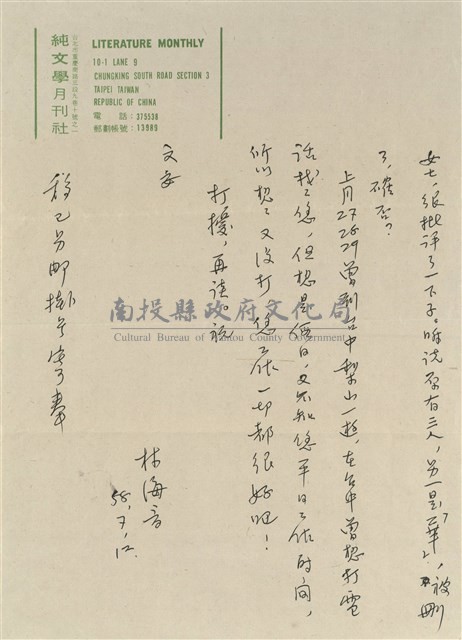 純文學月刊社
台北市重慶南路三段九巷十號之一
LITERATURE MONTHLY
10-1 LANE 9
CHUNGKING SOUTH ROAD SECTION 3
TAIPEI TAIWAN
REPUBLIC OF CHINA
電話：375538
郵劃帳號：13989
女士，很批評了一下子。聽說原有三人，另一是「華」，被刪
了，確否？
上月27 28 29曾到台中梨山一遊，在台中曾想打電
話找您，但想是假日，又不知您平日工作時間，
所以想想又沒打。您工作一切都很好吧！
打擾，再談。祝
文安
林海音
58.7.12.
稿已另郵掛號寄奉
南投縣政府文化局
Cultural Bureau of Nantou County Government